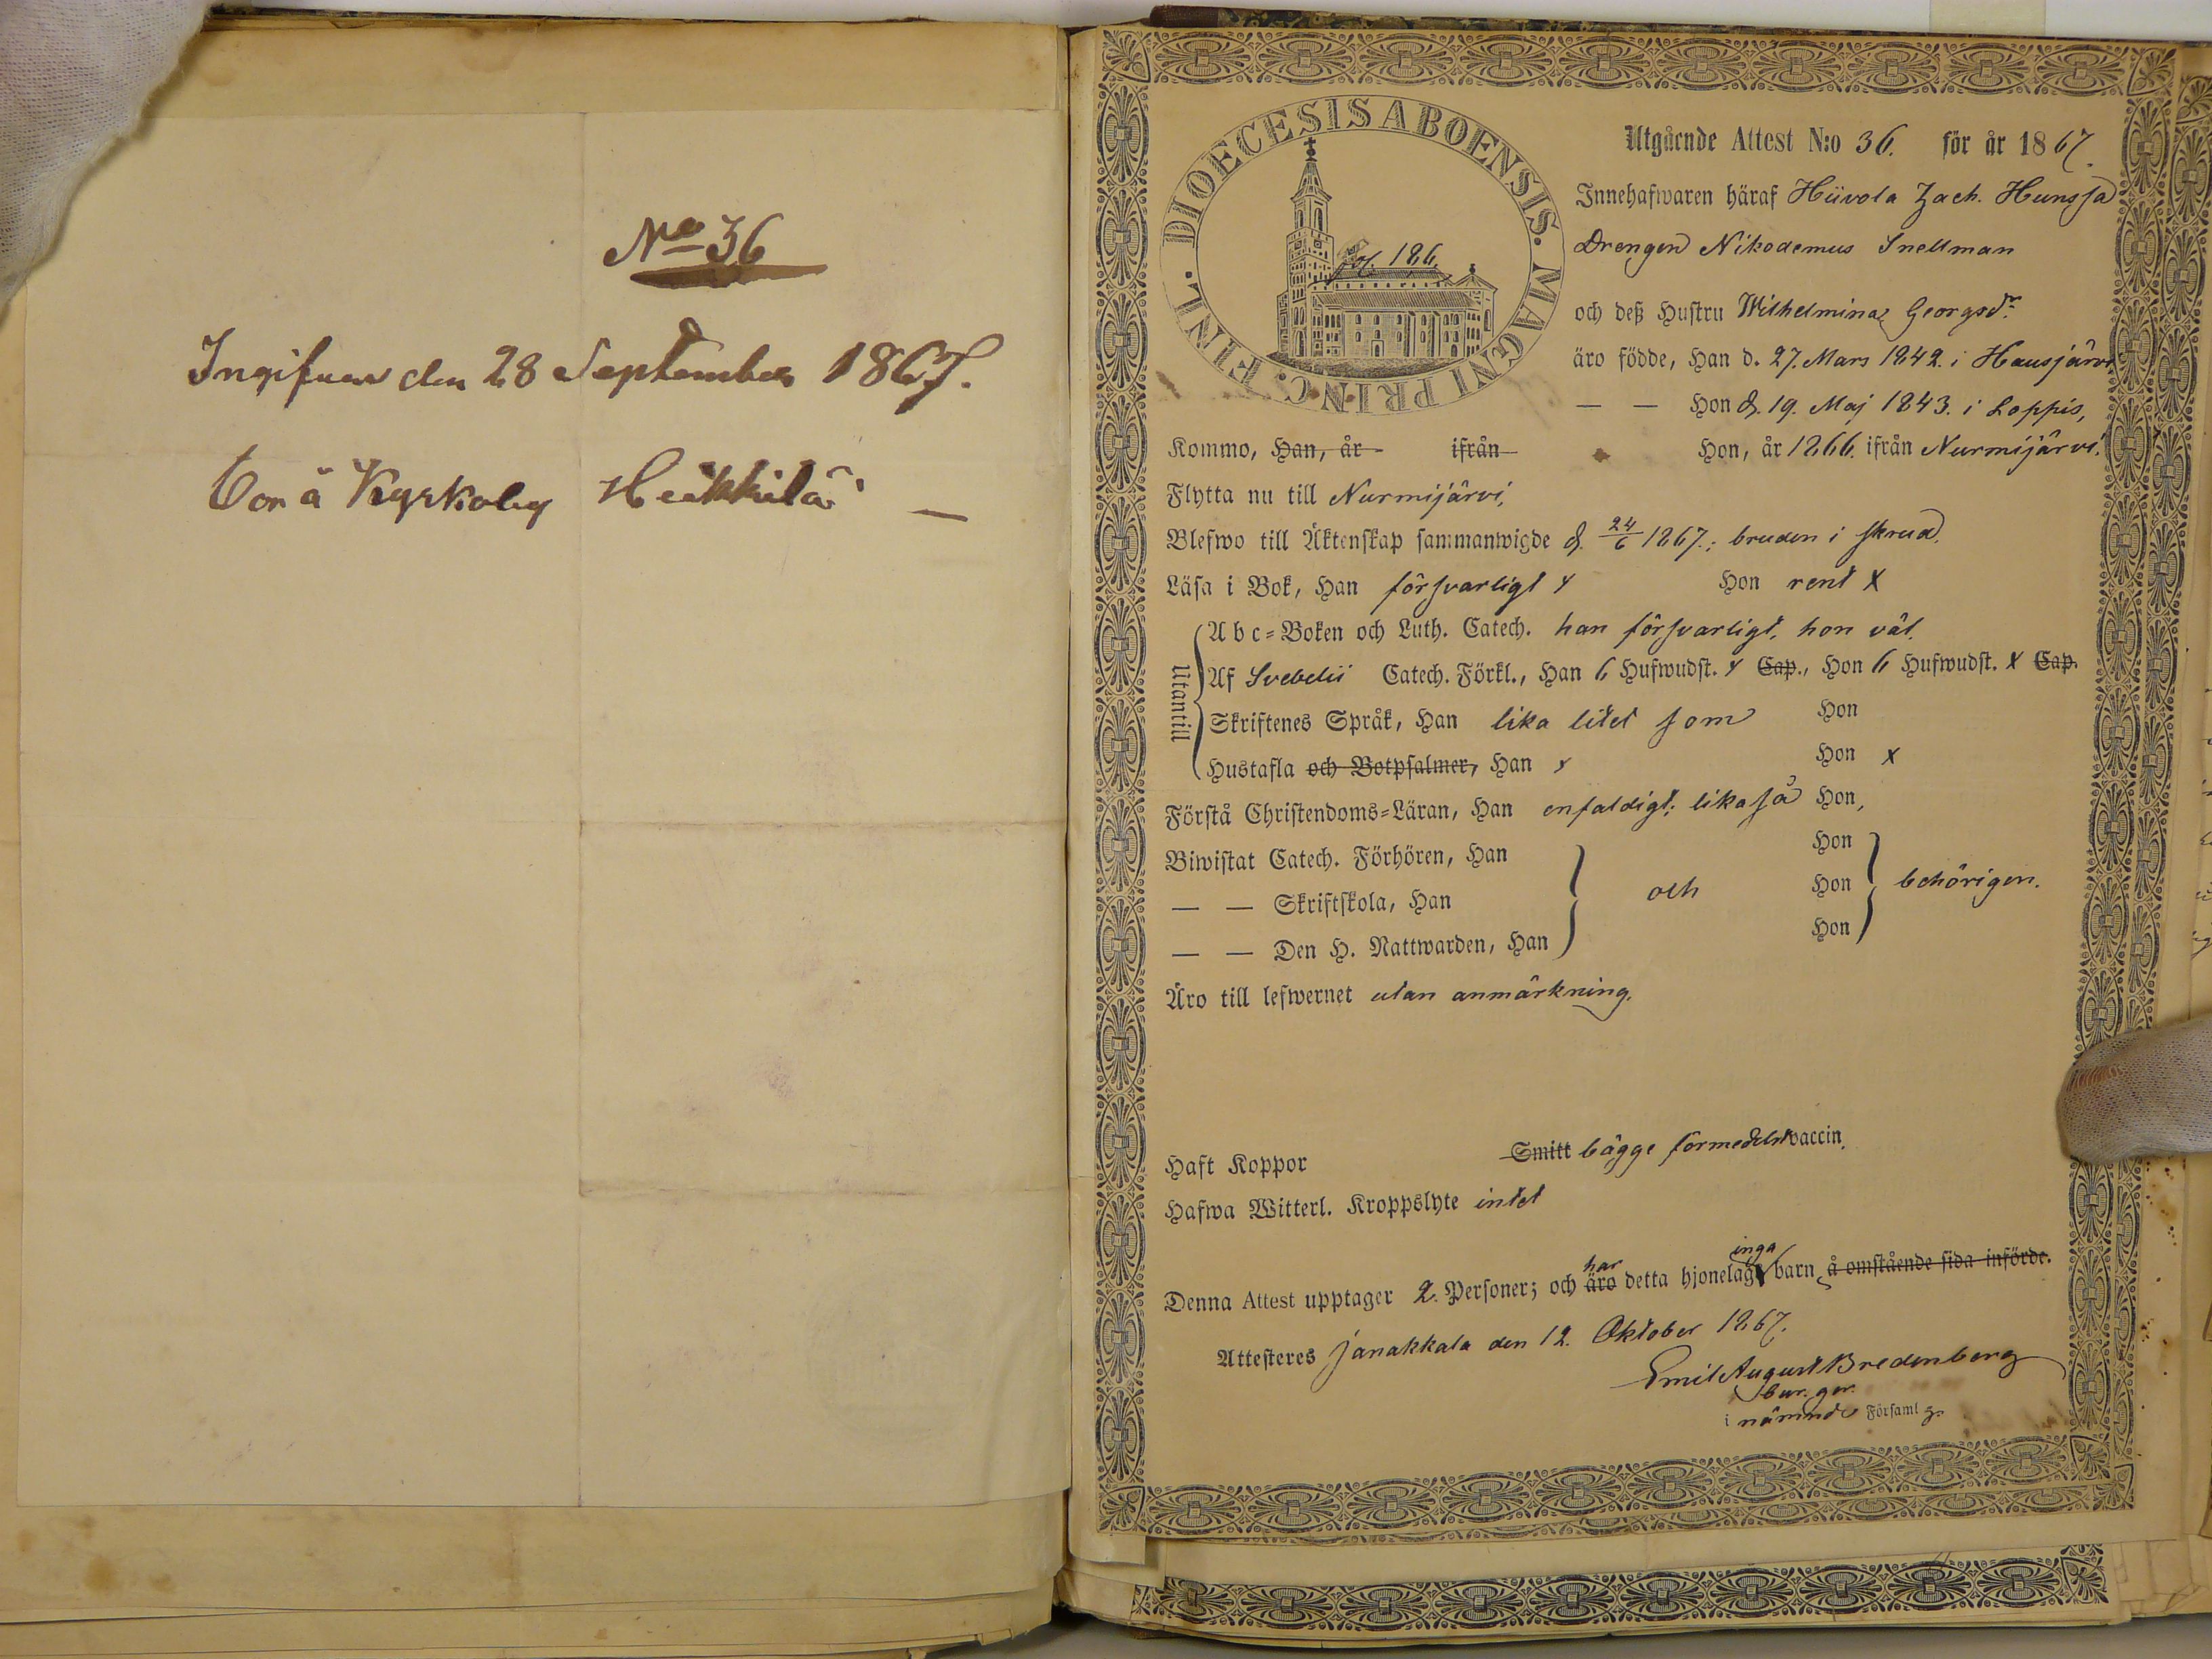 No 36
Ingifven den 28 September 1867.
Bor å Kyrkoby Heikkilä –
DIOECESIS ABOENSIS. MAGNI PRINC. FINL.
fol. 186.
Utgående Attest N:o 36. för år 1867.
Innehafwaren häraf Hiivola Zach. Hunssa
Drengen Nikodemus Snellman
och deß Hustru Wilhelmina Georgsdr.
äro födde, Han d. 27. Mars 1842. i Hausjärvi,
— — Hon d. 19. Maj 1843. i Loppis,
Kommo, Han, år ifrån Hon, år 1866. ifrån Nurmijärvi.
Flytta nu till Nurmijärvi,
Blefwo till Äktenskap sammanwigde d. 24/6 1867.; bruden i skrud.
Läsa i Bok, Han försvarligt x Hon rent x
Utantill
Abc=Boken och Luth. Catech. han försvarligt, hon väl.
Af Svebelii Catech. Förkl., Han 6 Hufwudst. x Cap., Hon 6 Hufwudst. x Cap.
Skriftenes Språk, Han lika litet som Hon
Hustafla och Botpsalmer, Han x Hon x
Förstå Christendoms=Läran, Han enfaldigt; likaså Hon,
Biwistat Catech. Förhören, Han Hon
— — Skriftskola, Han och Hon behörigen.
— — Den H. Nattwarden, Han Hon
Äro till lefwernet utan anmärkning.
Haft Koppor Smitt bägge förmedelst vaccin.
Hafwa Witterl. Kroppslyte intet
har inga
Denna Attest upptager 2. Personer; och äro detta hjonelag barn å omstående sida införde.
Attesteres Janakkala den 12. Oktober 1867.
Emil August Bredenberg
i nämnde Församl g.